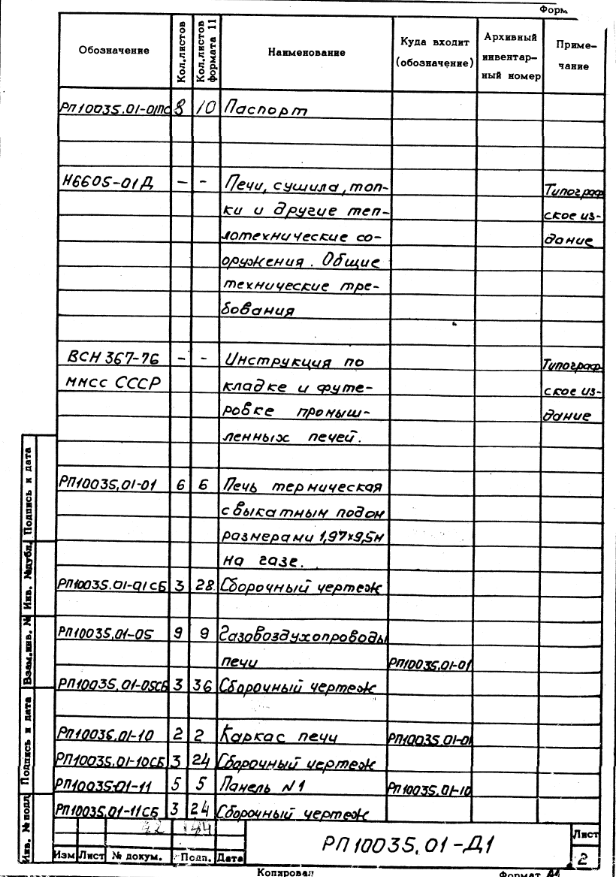 Форм
Обозначение Кол.листов Кол.листов формата 11 Наименование Куда входит (обозначение) Архивный инвентарный номер Примечание
РП10035.01-01ПС 8 10 Паспорт
Н6605-01Д - - Печи, сушила, топ-
ки и другие теп- Типограф
лотехнические со- ское из-
оружения. Общие дание
технические тре-
бования
ВСН 367-76 - - Инструкция по Типограф
ММСС СССР кладке и футе- ское из-
ровке промыш- дание
ленных печей.
РП10035.01-01 6 6 Печь термическая
с выкатным подом
размерами 1,97×9,5м
на газе.
РП10035.01-01СБ 3 28 Сборочный чертеж
РП10035.01-05 9 9 Газовоздухопроводы
печи РП10035.01-01
РП10035.01-05СБ 3 36 Сборочный чертеж
РП10035.01-10 2 2 Каркас печи РП10035.01-01
РП10035.01-10СБ 3 24 Сборочный чертеж
РП10035-01-11 5 5 Панель №1 РП10035.01-10
РП10035.01-11СБ 3 24 Сборочный чертеж
РП10035.01-Д1
Лист
2
Изм Лист № докум. Подп. Дата
Копировал Формат
Инв. № подл Подпись и дата Взам.инв. № Инв. № дубл. Подпись и дата